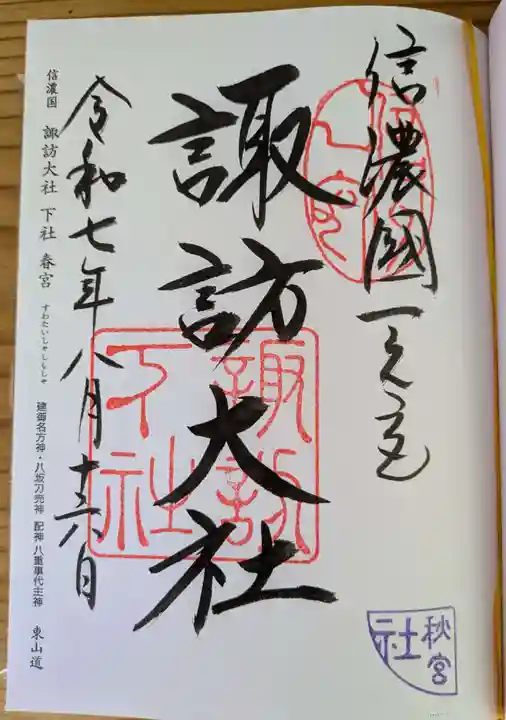 信濃國一之宮
諏訪大社
令和七年八月十六日
信濃国 諏訪大社 下社 春宮 すわたいしゃ しもしゃ 建御名方神・八坂刀売神 配神 八重事代主神 東山道
信濃
一宮
諏訪
下社
秋宮
社